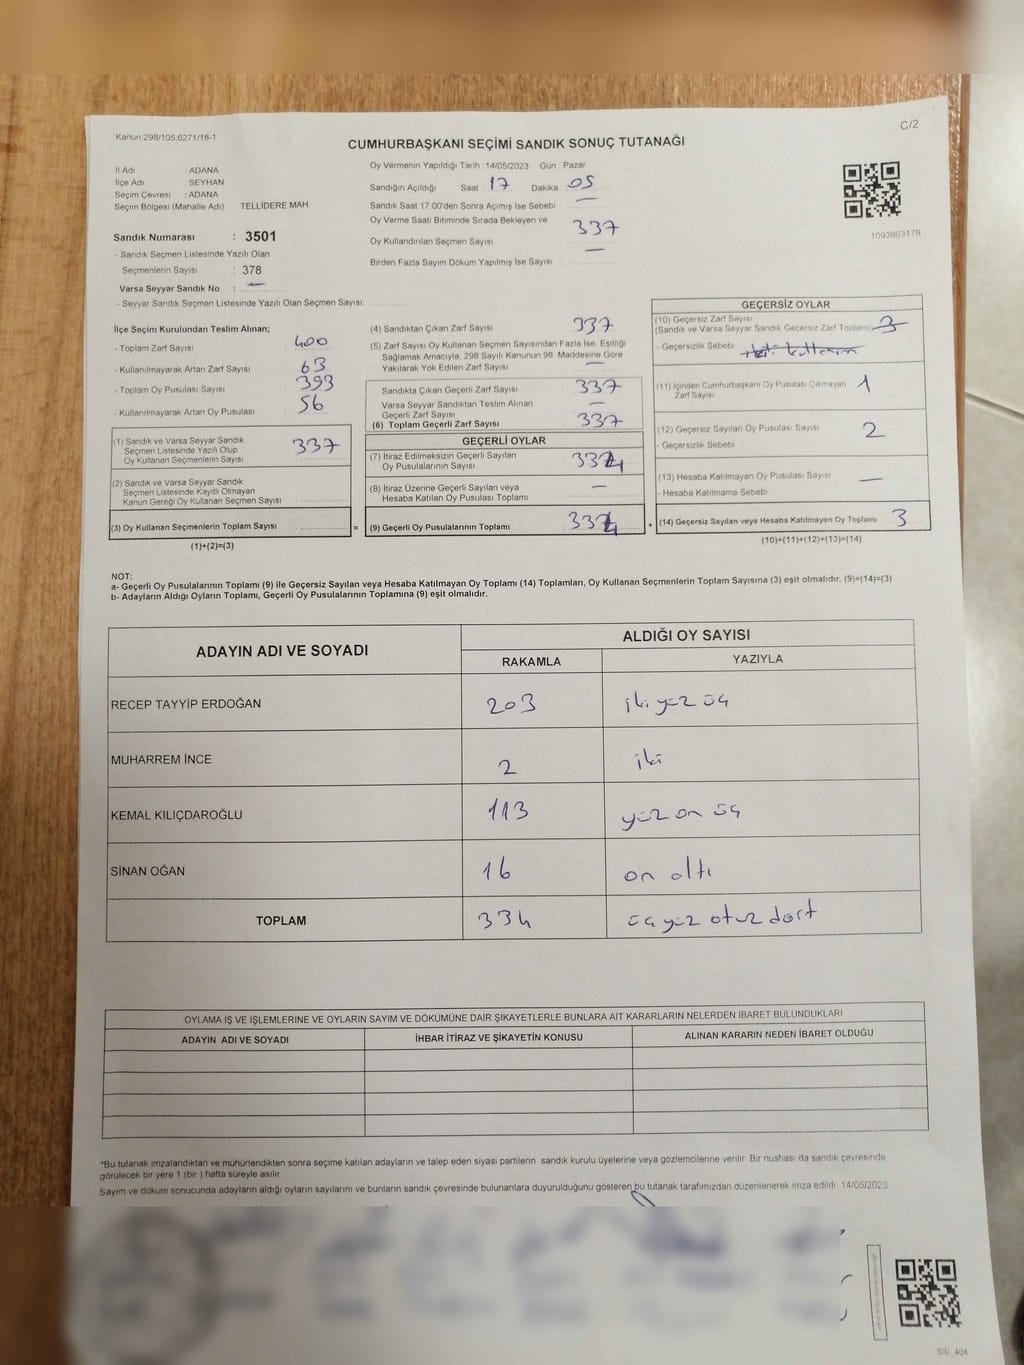 Kanun:298/105,6271/18-1
C/2
CUMHURBAŞKANI SEÇİMİ SANDIK SONUÇ TUTANAĞI
İl Adı ADANA
İlçe Adı : SEYHAN
Seçim Çevresi : ADANA
Seçim Bölgesi (Mahalle Adı) : TELLİDERE MAH.
Sandık Numarası : 3501
- Sandık Seçmen Listesinde Yazılı Olan
Seçmenlerin Sayısı : 378
Varsa Seyyar Sandık No : —
- Seyyar Sandık Seçmen Listesinde Yazılı Olan Seçmen Sayısı:
Oy Vermenin Yapıldığı Tarih :14/05/2023 Gün : Pazar
Sandığın Açıldığı Saat 17 Dakika 05
Sandık Saat 17:00'den Sonra Açımış İse Sebebi —
Oy Verme Saati Bitiminde Sırada Bekleyen ve
Oy Kullandırılan Seçmen Sayısı 337
Birden Fazla Sayım Döküm Yapılmış İse Sayısı —
1093863178
İlçe Seçim Kurulundan Teslim Alınan;
- Toplam Zarf Sayısı : 400
- Kullanılmayarak Artan Zarf Sayısı : 63
- Toplam Oy Pusulası Sayısı : 393
- Kullanılmayarak Artan Oy Pusulası : 56
(1) Sandık ve Varsa Seyyar Sandık
Seçmen Listesinde Yazılı Olup
Oy Kullanan Seçmenlerin Sayısı : 337
(2) Sandık ve Varsa Seyyar Sandık
Seçmen Listesinde Kayıtlı Olmayan
Kanun Gereği Oy Kullanan Seçmen Sayısı :
(3) Oy Kullanan Seçmenlerin Toplam Sayısı : =
(1)+(2)=(3)
(4) Sandıktan Çıkan Zarf Sayısı 337
(5) Zarf Sayısı Oy Kullanan Seçmen Sayısından Fazla İse, Eşitliği
Sağlamak Amacıyla, 298 Sayılı Kanunun 98. Maddesine Göre
Yakılarak Yok Edilen Zarf Sayısı —
Sandıkta Çıkan Geçerli Zarf Sayısı 337
Varsa Seyyar Sandıktan Teslim Alınan
Geçerli Zarf Sayısı —
(6) Toplam Geçerli Zarf Sayısı 337
GEÇERLİ OYLAR
(7) İtiraz Edilmeksizin Geçerli Sayılan
Oy Pusulalarının Sayısı 334
(8) İtiraz Üzerine Geçerli Sayılan veya
Hesaba Katılan Oy Pusulası Toplamı —
(9) Geçerli Oy Pusulalarının Toplamı 334 +
GEÇERSİZ OYLAR
(10) Geçersiz Zarf Sayısı
(Sandık ve Varsa Seyyar Sandık Geçersiz Zarf Toplamı)
- Geçersizlik Sebebi
(11) İçinden Cumhurbaşkanı Oy Pusulası Çıkmayan
Zarf Sayısı 1
(12) Geçersiz Sayılan Oy Pusulası Sayısı 2
- Geçersizlik Sebebi :
(13) Hesaba Katılmayan Oy Pusulası Sayısı —
- Hesaba Katılmama Sebebi
(14) Geçersiz Sayılan veya Hesaba Katılmayan Oy Toplamı 3
(10)+(11)+(12)+(13)=(14)
NOT:
a- Geçerli Oy Pusulalarının Toplamı (9) ile Geçersiz Sayılan veya Hesaba Katılmayan Oy Toplamı (14) Toplamları, Oy Kullanan Seçmenlerin Toplam Sayısına (3) eşit olmalıdır. (9)+(14)=(3)
b- Adayların Aldığı Oyların Toplamı, Geçerli Oy Pusulalarının Toplamına (9) eşit olmalıdır.
ADAYIN ADI VE SOYADI ALDIĞI OY SAYISI
RAKAMLA YAZIYLA
RECEP TAYYİP ERDOĞAN 203 iki yüz üç
MUHARREM İNCE 2 iki
KEMAL KILIÇDAROĞLU 113 yüz on üç
SİNAN OĞAN 16 on altı
TOPLAM 334 üç yüz otuz dört
OYLAMA İŞ VE İŞLEMLERİNE VE OYLARIN SAYIM VE DÖKÜMÜNE DAİR ŞİKAYETLERLE BUNLARA AİT KARARLARIN NELERDEN İBARET BULUNDUKLARI
ADAYIN ADI VE SOYADI İHBAR İTİRAZ VE ŞİKAYETİN KONUSU ALINAN KARARIN NEDEN İBARET OLDUĞU
*Bu tutanak imzalandıktan ve mühürlendikten sonra seçime katılan adayların ve talep eden siyasi partilerin sandık kurulu üyelerine veya gözlemcilerine verilir. Bir nüshası da sandık çevresinde
görülecek bir yere 1 (bir ) hafta süreyle asılır.
Sayım ve döküm sonucunda adayların aldığı oyların sayılarını ve bunların sandık çevresinde bulunanlara duyurulduğunu gösteren bu tutanak tarafımızdan düzenlenerek imza edildi. 14/05/2023
SSI_404